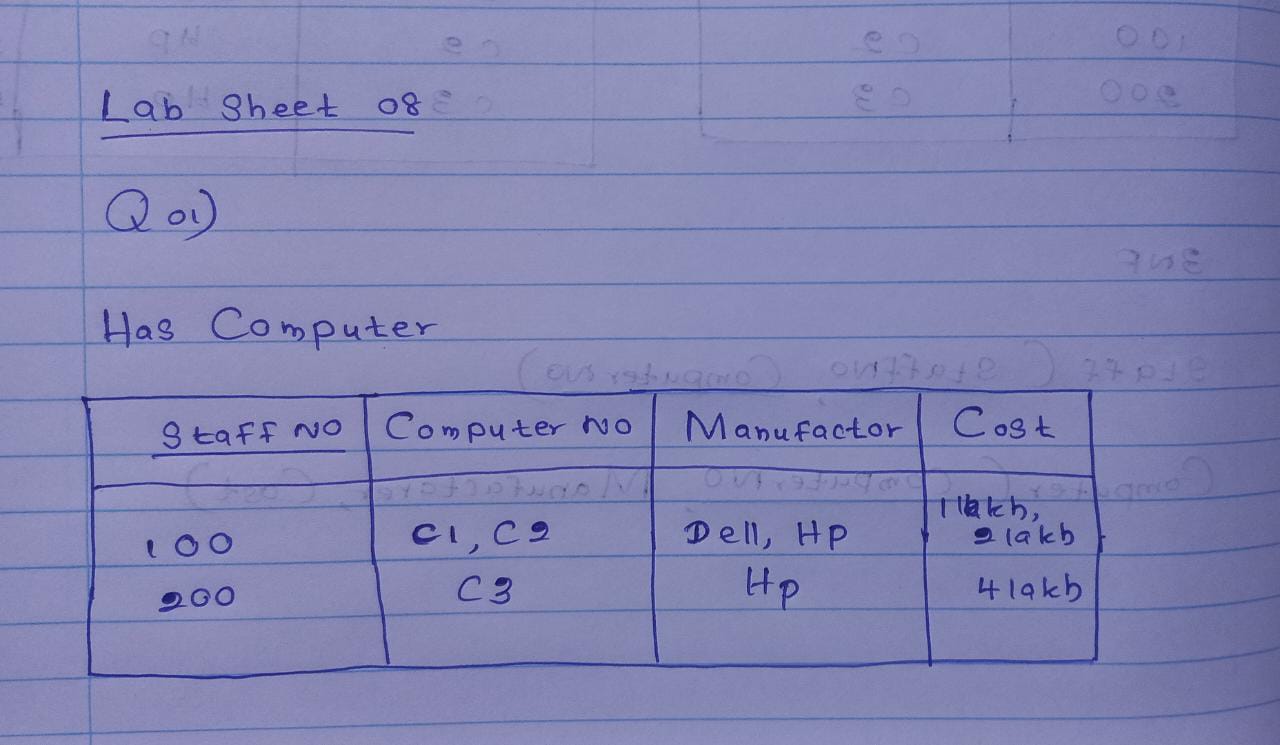 Lab Sheet 08
Q 01)
Has Computer
Staff NO Computer NO Manufactor Cost
100 C1, C2 Dell, Hp 1 lakh, 2 lakh
200 C3 Hp 4 lakh